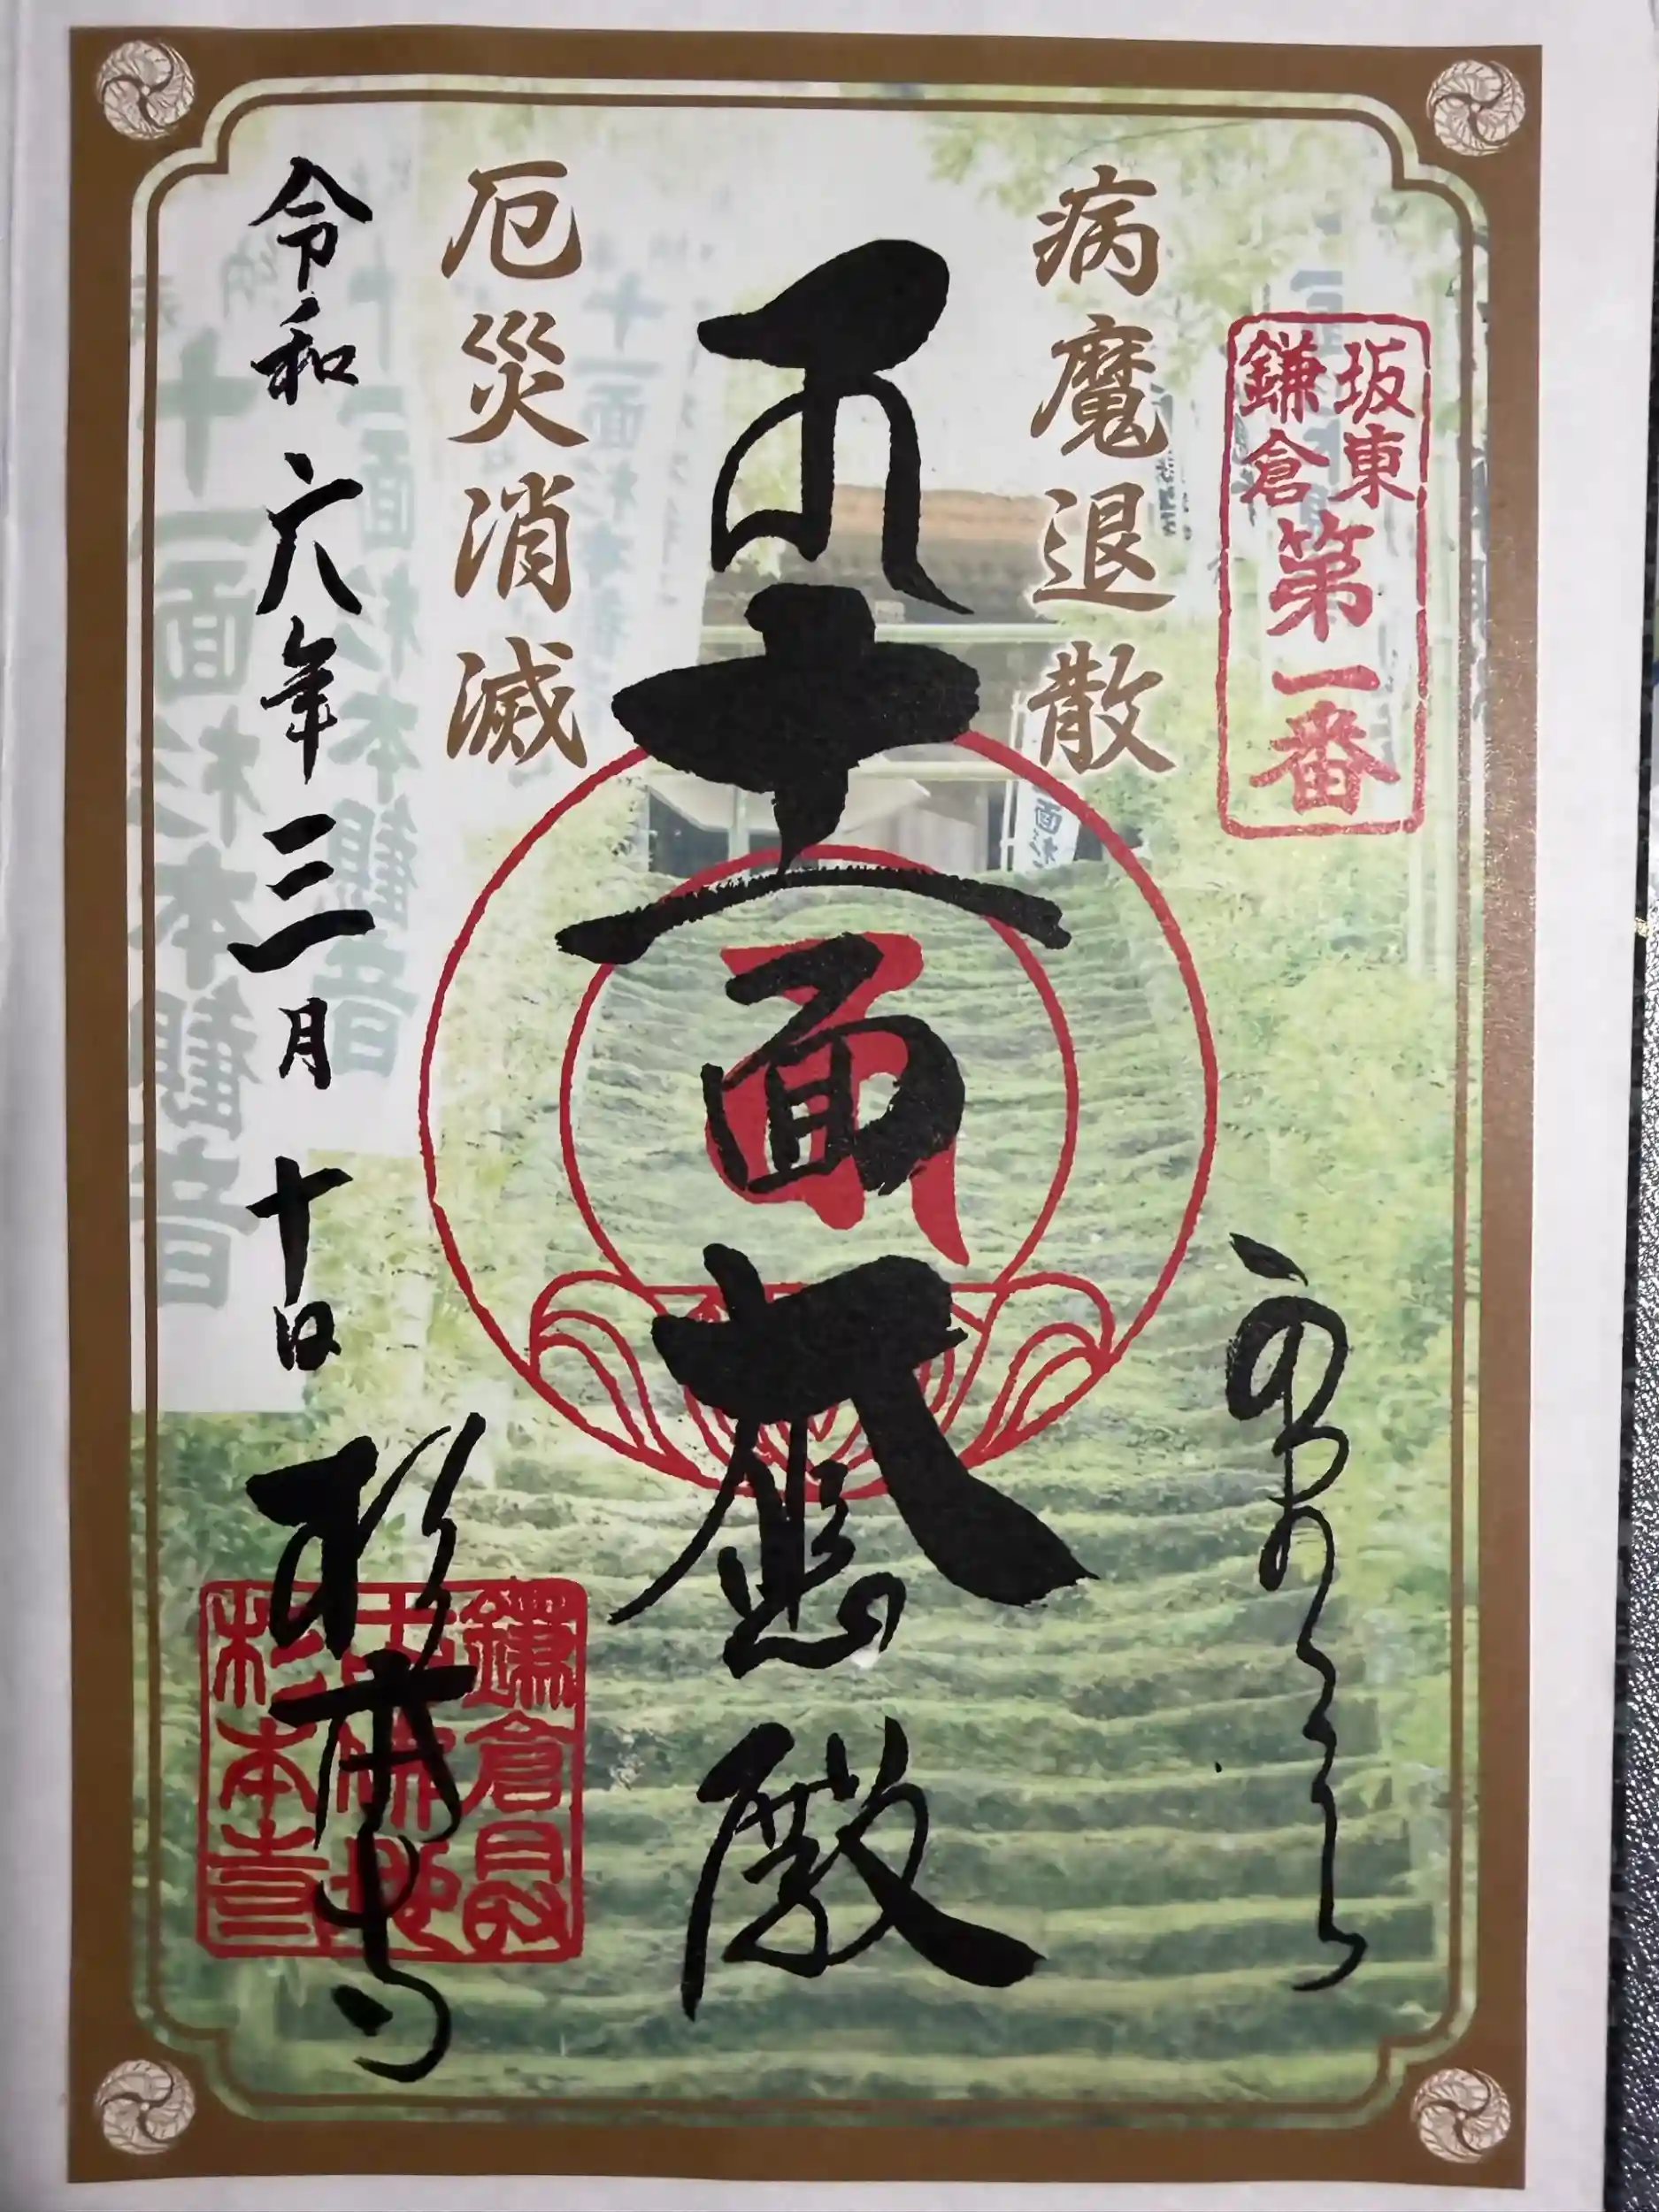 坂東
鎌倉
第一番
奉拝
病魔退散
十一面大悲殿
厄災消滅
令和六年三月十日
杉本寺
鎌倉最
古佛地
杉本寺
十一面杉本観音
十一面杉本観音
面杉